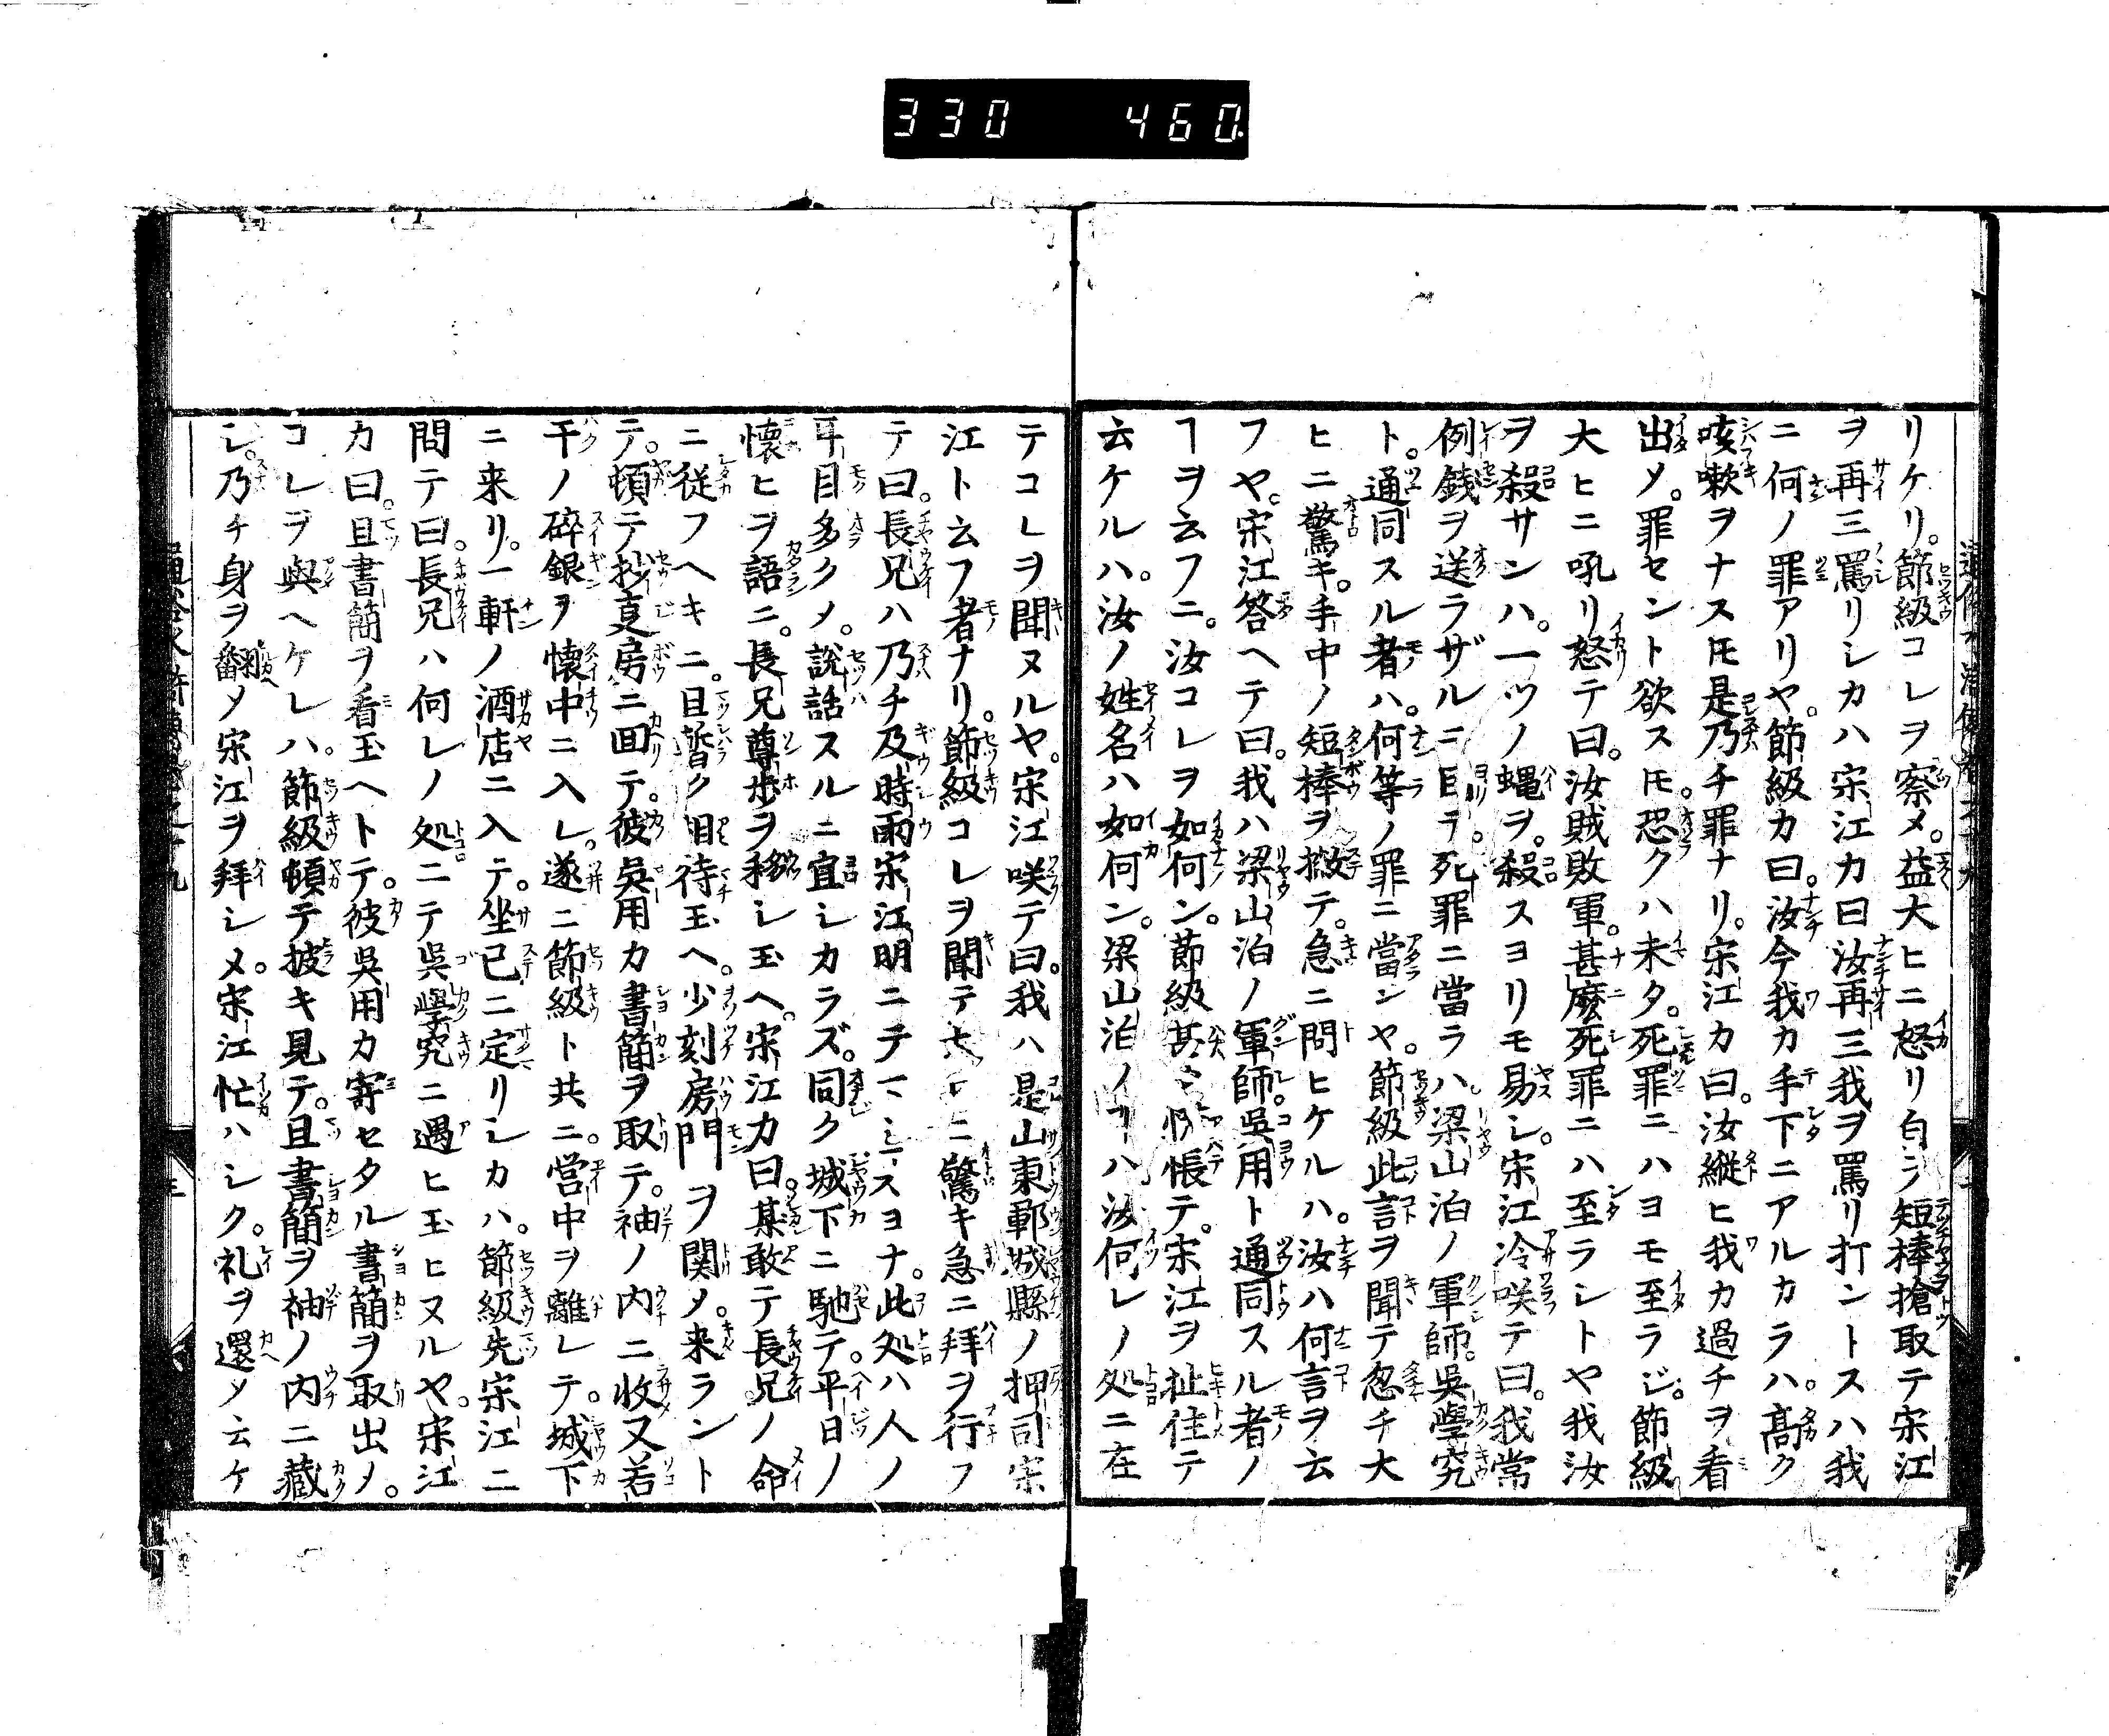 330 460
リケリ。節級コレヲ察メ。益大ヒニ怒リ自ラ短棒搶取テ宋江
ヲ再三罵リシカハ宋江カ曰汝再三我ヲ罵リ打ントスハ我
ニ何ノ罪アリヤ。節級カ曰。汝今我カ手下ニアルカラハ。高ク
咳嗽ヲナスヒ是乃チ罪ナリ。宋江カ曰。汝縦ヒ我カ過チヲ看
出メ。罪セント欲スヒ。恐クハ未タ。死罪ニハヨモ至ラジ。節級
大ヒニ吼リ怒テ曰。汝賊敗軍。甚麼死罪ニハ至ラシトヤ我汝
ヲ殺サンハ。一ツノ蝿ヲ。殺スヨリモ易シ。宋江冷咲テ曰。我常
例銭ヲ送ラザルニ因テ。死罪ニ當ラハ。梁山泊ノ軍師。呉學究
ト。通同スル者ハ。何等ノ罪ニ當ンヤ。節級此言ヲ聞テ忽チ大
ヒニ驚キ。手中ノ短棒ヲ撇テ。急ニ問ヒケルハ。汝ハ何言ヲ云
フヤ。宋江答ヘテ曰。我ハ梁山泊ノ軍師。呉用ト通同スル者ノ
ヿヲ云フニ。汝コレヲ如何ン。節級甚慌帳テ。宋江ヲ扯住テ
云ケルハ。汝ノ姓名ハ如何ン。梁山泊ノヿハ汝何レノ処ニ在
テコレヲ聞ヌルヤ。宋江咲テ曰。我ハ是山東鄆城縣ノ押司宋
江ト云フ者ナリ。節級コレヲ聞テ大ヒニ驚キ急ニ拜ヲ行フ
テ曰。長兄ハ乃チ及時雨宋江明ニテマシマスヨナ。此処ハ人ノ
耳目多クメ。説話スルニ宜シカラズ。同ク城下ニ馳テ。平日ノ
懐ヒヲ語ニ。長兄尊歩ヲ移シ玉ヘ。宋江カ曰。某敢テ長兄ノ命
ニ従フヘキニ。且暫ク相待玉ヘ。少刻房門ヲ関メ。来ラント
テ。頓テ抄叓房ニ回テ。彼呉用カ書簡ヲ取テ。袖ノ内ニ收又若
干ノ碎銀ヲ懐中ニ入レ。遂ニ節級ト共ニ。営中ヲ離レテ。城下
ニ来リ。一軒ノ酒店ニ入テ。坐已ニ定リシカハ。節級先宋江ニ
問テ曰。長兄ハ何レノ処ニテ呉學究ニ遇ヒ玉ヒヌルヤ。宋江
カ曰。且書簡ヲ看玉ヘトテ。彼呉用カ寄セタル書簡ヲ取出メ。
コレヲ與ヘケレハ。節級頓テ披キ見テ。且書簡ヲ袖ノ内ニ藏
シ。乃チ身ヲ翻メ宋江ヲ拜シメ。宋江忙ハシク。礼ヲ還メ云ケ